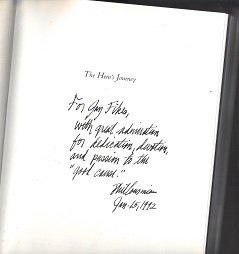 The Hero's Journey
For Jay Fikes,
with great admiration
for dedication, devotion,
and passion to the
"good cause."
Phil Cousineau
Jan. 15, 1992